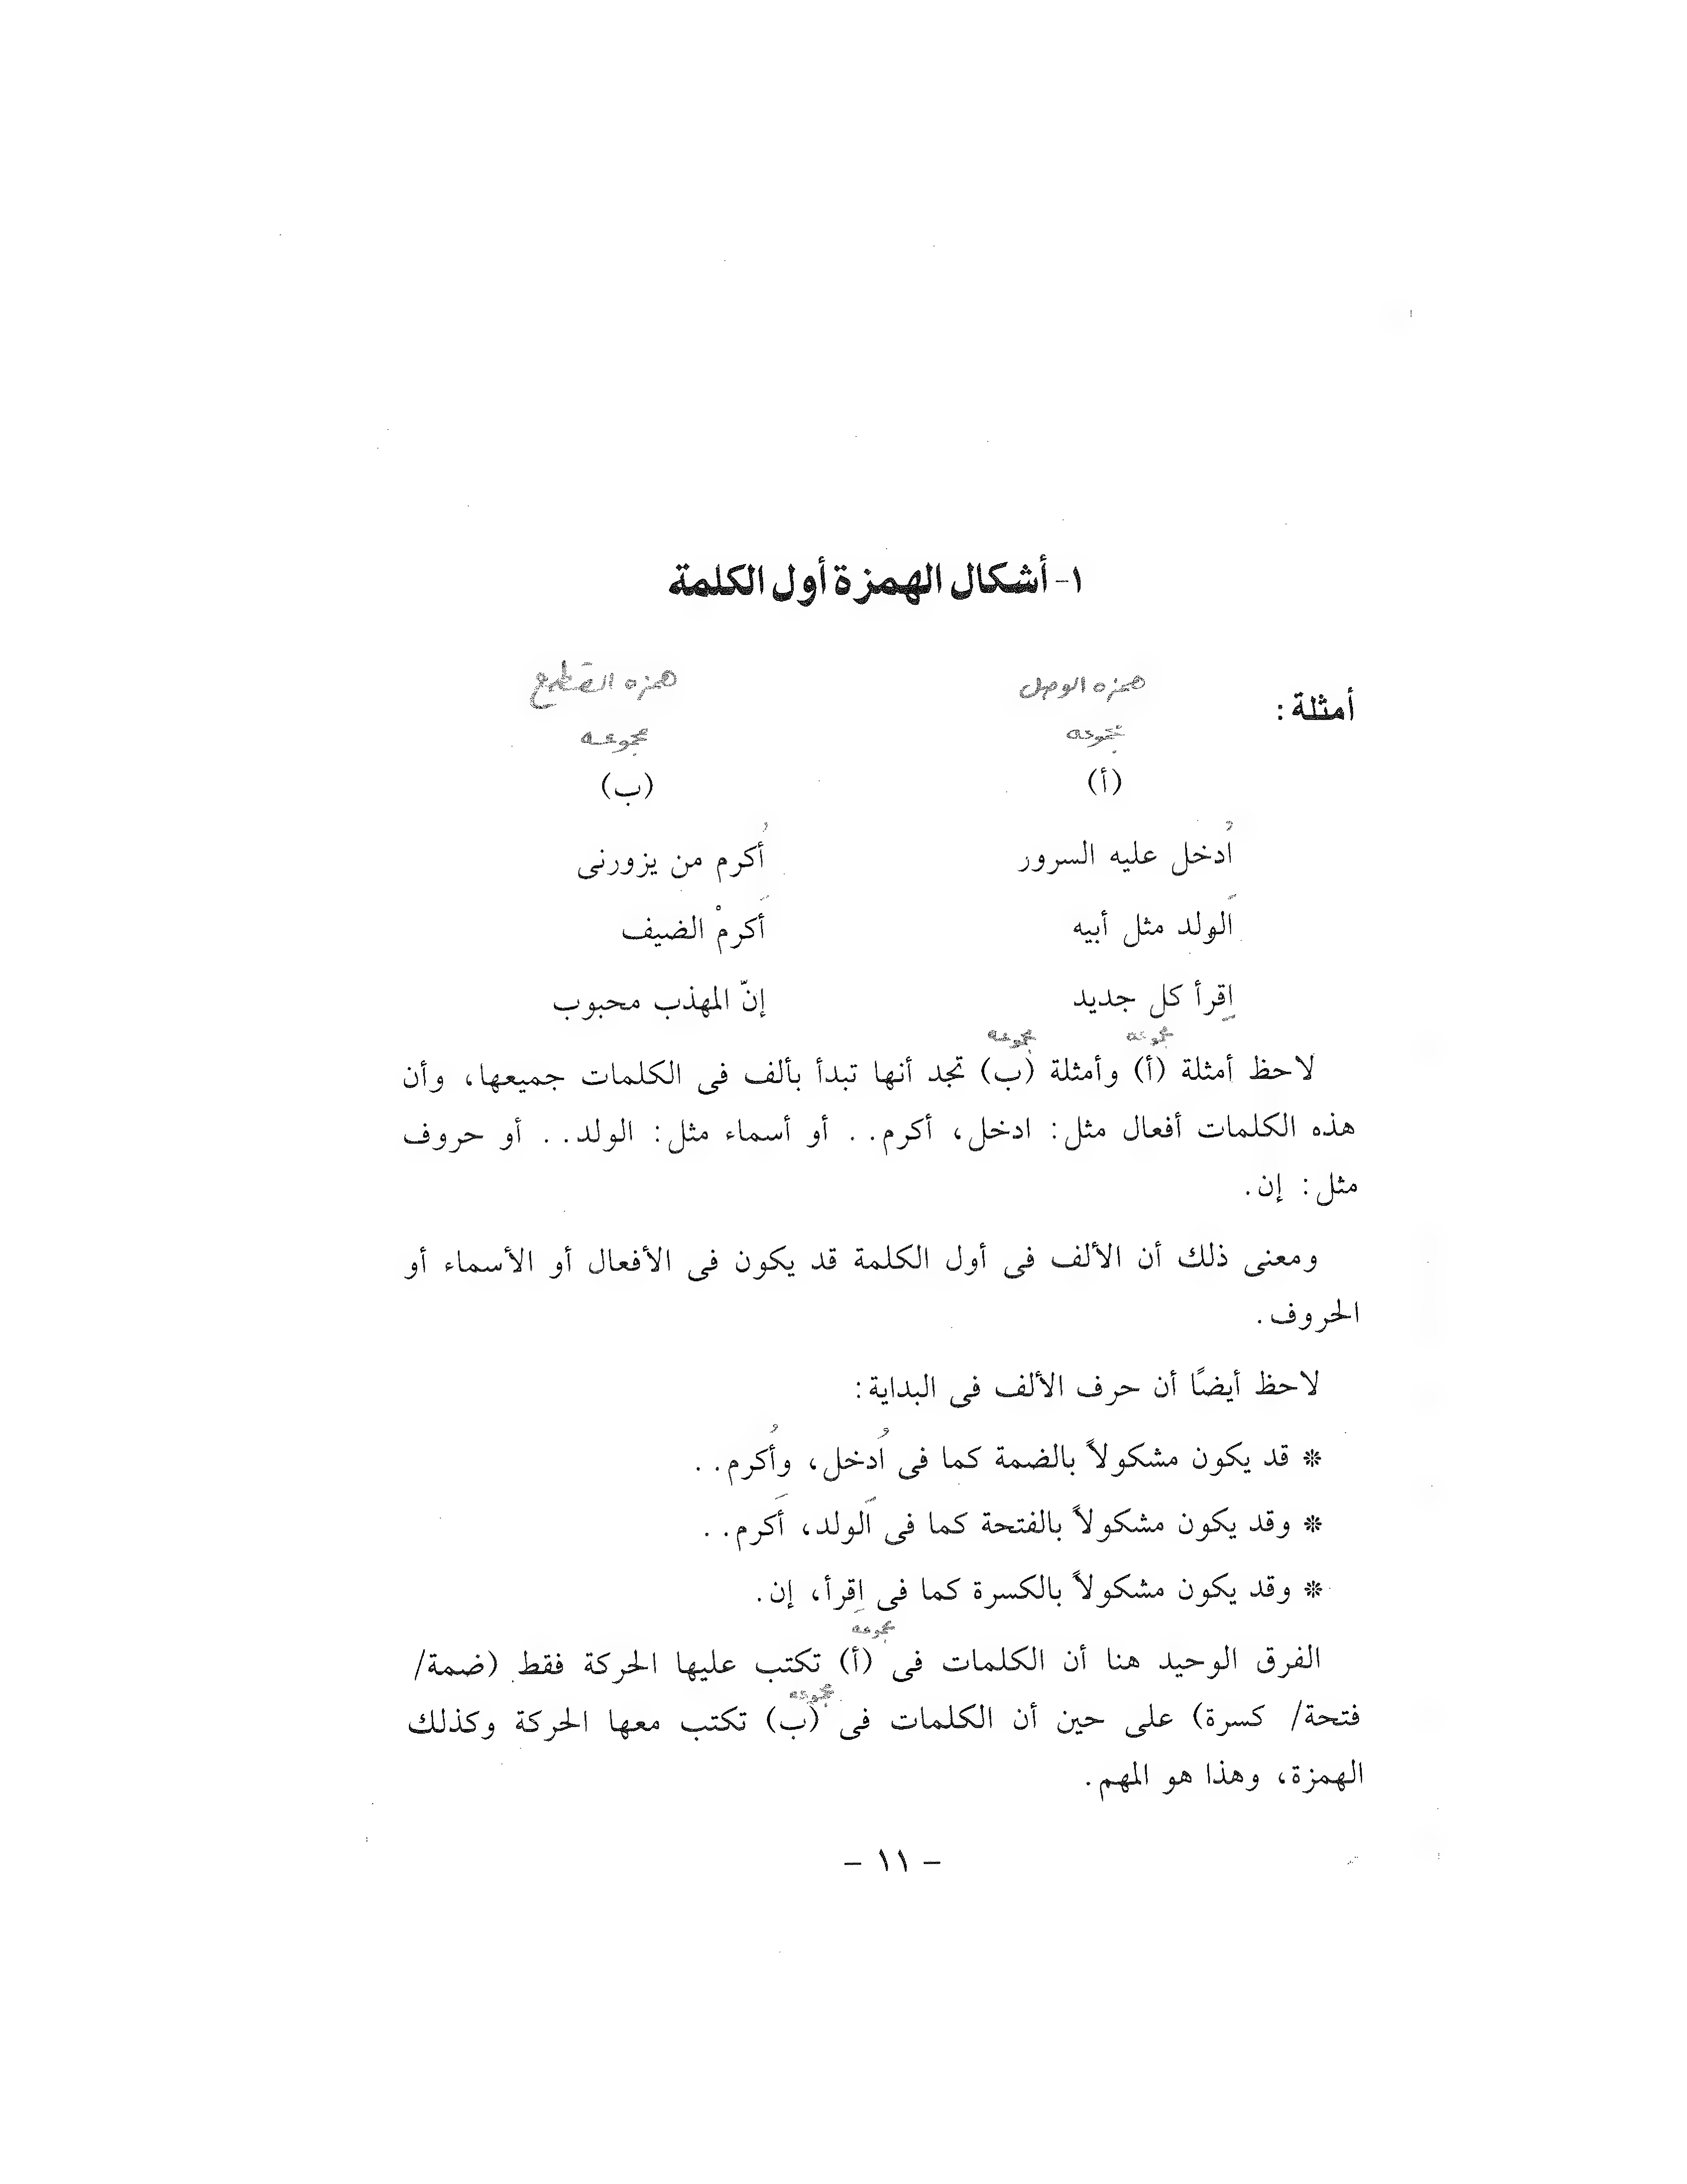 ١- أشكال الهمزة أول الكلمة
أمثلة :
همزه الوصل	همزه القطع
مجموعه	مجموعه
(أ)	(ب)
اُدخل عليه السرور	أُكرم من يزورنى
اَلولد مثل أبيه	أَكرمْ الضيف
اِقرأ كل جديد	إنّ المهذب محبوب
مجموعه	مجموعه
لاحظ أمثلة (أ) وأمثلة (ب) تجد أنها تبدأ بألف فى الكلمات جميعها، وأن
هذه الكلمات أفعال مثل: ادخل، أكرم.. أو أسماء مثل: الولد.. أو حروف
مثل: إن.
ومعنى ذلك أن الألف فى أول الكلمة قد يكون فى الأفعال أو الأسماء أو
الحروف.
لاحظ أيضًا أن حرف الألف فى البداية:
* قد يكون مشكولاً بالضمة كما فى اُدخل، وأُكرم..
* وقد يكون مشكولاً بالفتحة كما فى اَلولد، أَكرم..
* وقد يكون مشكولاً بالكسرة كما فى اِقرأ، إن.
مجموعه
الفرق الوحيد هنا أن الكلمات فى (أ) تكتب عليها الحركة فقط (ضمة/
مجموعه
فتحة/ كسرة) على حين أن الكلمات فى (ب) تكتب معها الحركة وكذلك
الهمزة، وهذا هو المهم.
- ١١ -